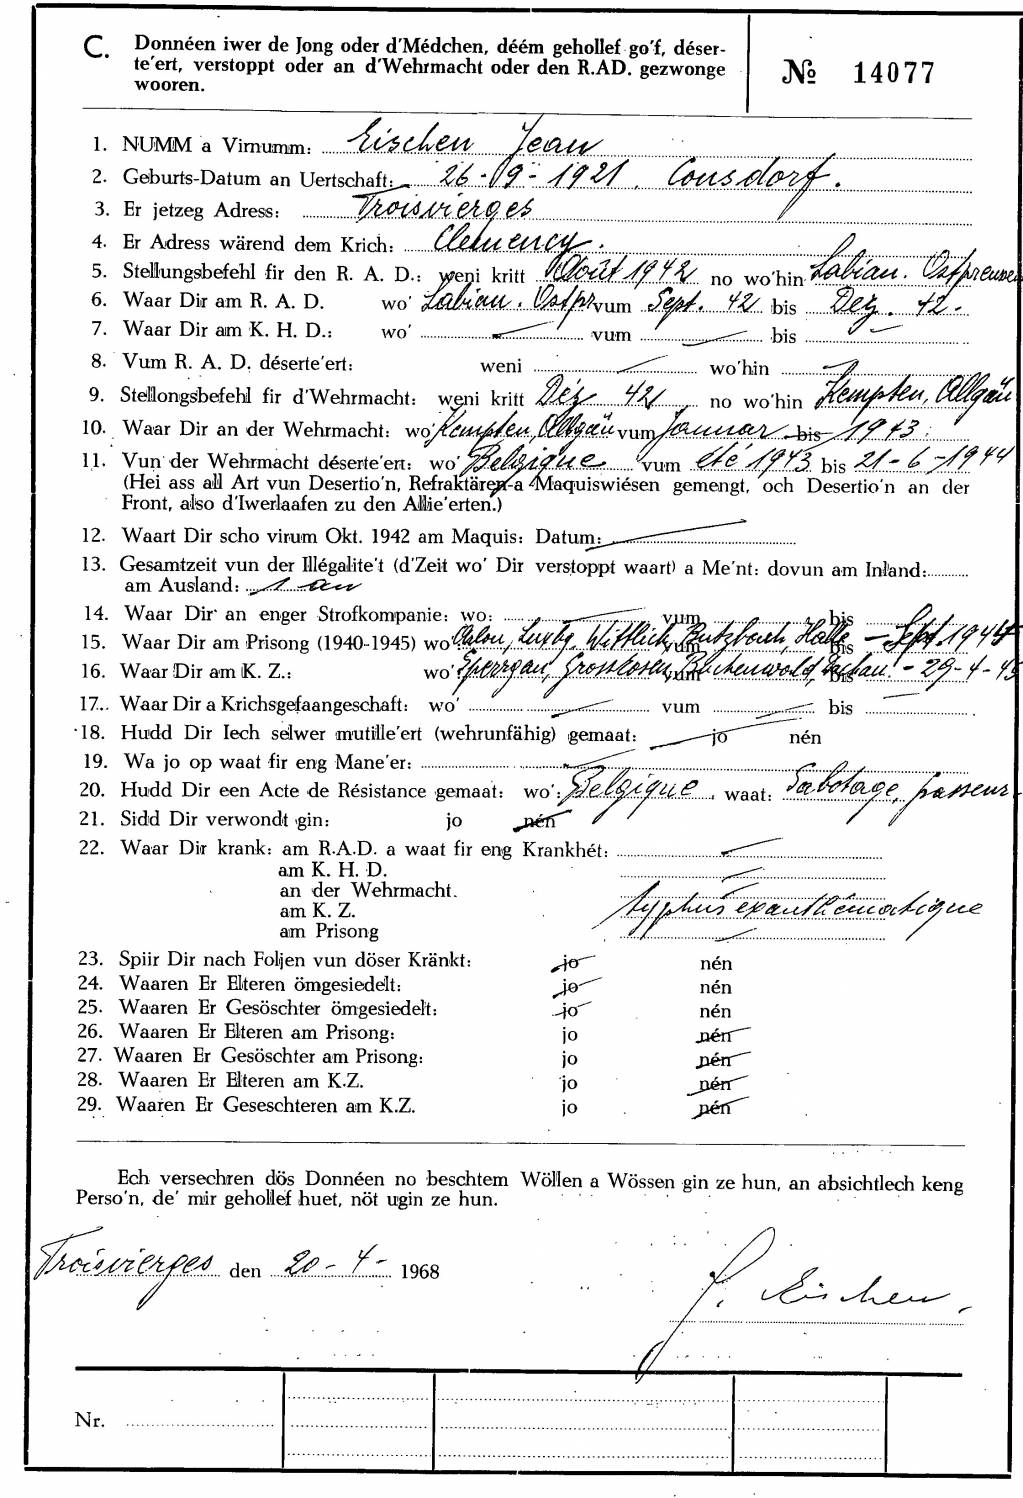 C. Donnéen iwer de Jong oder d'Médchen, déém gehollef go'f, déser-
te'ert, verstoppt oder an d'Wehrmacht oder den R.AD. gezwonge
wooren.
№ 14077
1. NUMM a Virnumm: Eischen Jean
2. Geburts-Datum an Uertschaft: 26-9-1921. Consdorf.
3. Er jetzeg Adress: Troisvierges
4. Er Adress wärend dem Krich: Clemency.
5. Stellungsbefehl fir den R. A. D.: weni kritt Août 1942 no wo'hin Labiau. Ostpreusen
6. Waar Dir am R. A. D. wo' Labiau. Ostpr vum Sept. 42 bis Dez. 42.
7. Waar Dir am K. H. D.: wo' vum bis
8. Vum R. A. D. déserte'ert: weni wo'hin
9. Stellongsbefehl fir d'Wehrmacht: weni kritt Déz 42 no wo'hin Kempten, Allgäu
10. Waar Dir an der Wehrmacht: wo' Kempten, Allgäu vum Januar bis 1943.
11. Vun der Wehrmacht déserte'ert: wo' Belgique vum été 1943 bis 21-6-1944
(Hei ass all Art vun Desertio'n, Refraktären-a Maquiswiésen gemengt, och Desertio'n an der
Front, also d'Iwerlaafen zu den Allie'erten.)
12. Waart Dir scho virum Okt. 1942 am Maquis: Datum:
13. Gesamtzeit vun der Illégalite't (d'Zeit wo' Dir verstoppt waart) a Me'nt: dovun am Inland:
am Ausland: 1 an
14. Waar Dir an enger Strofkompanie: wo: vum bis
15. Waar Dir am Prisong (1940-1945) wo' Arlon, Luxbg, Wittlich, Butzbach, Halle vum bis - Sept. 1944
16. Waar Dir am K. Z.: wo' Spergau, Grosskosen, Buchenwald, Dachau vum bis - 29-4-45
17. Waar Dir a Krichsgefaangeschaft: wo' vum bis
18. Hudd Dir Iech selwer mutille'ert (wehrunfähig) gemaat: jo nén
19. Wa jo op waat fir eng Mane'er:
20. Hudd Dir een Acte de Résistance gemaat: wo': Belgique, waat: Sabotage, passeur
21. Sidd Dir verwondt gin: jo nén
22. Waar Dir krank: am R.A.D. a waat fir eng Krankhét:
am K. H. D.
an der Wehrmacht.
am K. Z. typhus exanthématique
am Prisong
23. Spiir Dir nach Foljen vun döser Kränkt: jo nén
24. Waaren Er Elteren ömgesiedelt: jo nén
25. Waaren Er Gesöschter ömgesiedelt: jo nén
26. Waaren Er Elteren am Prisong: jo nén
27. Waaren Er Gesöschter am Prisong: jo nén
28. Waaren Er Elteren am K.Z. jo nén
29. Waaren Er Geseschteren am K.Z. jo nén
Ech versechren dös Donnéen no beschtem Wöllen a Wössen gin ze hun, an absichtlech keng
Perso'n, de' mir gehollef huet, nöt ugin ze hun.
Troisvierges den 20-4- 1968
J. Eischen.
Nr.